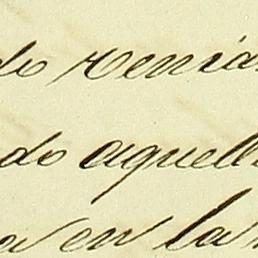 do tenia
do aquell
a en la